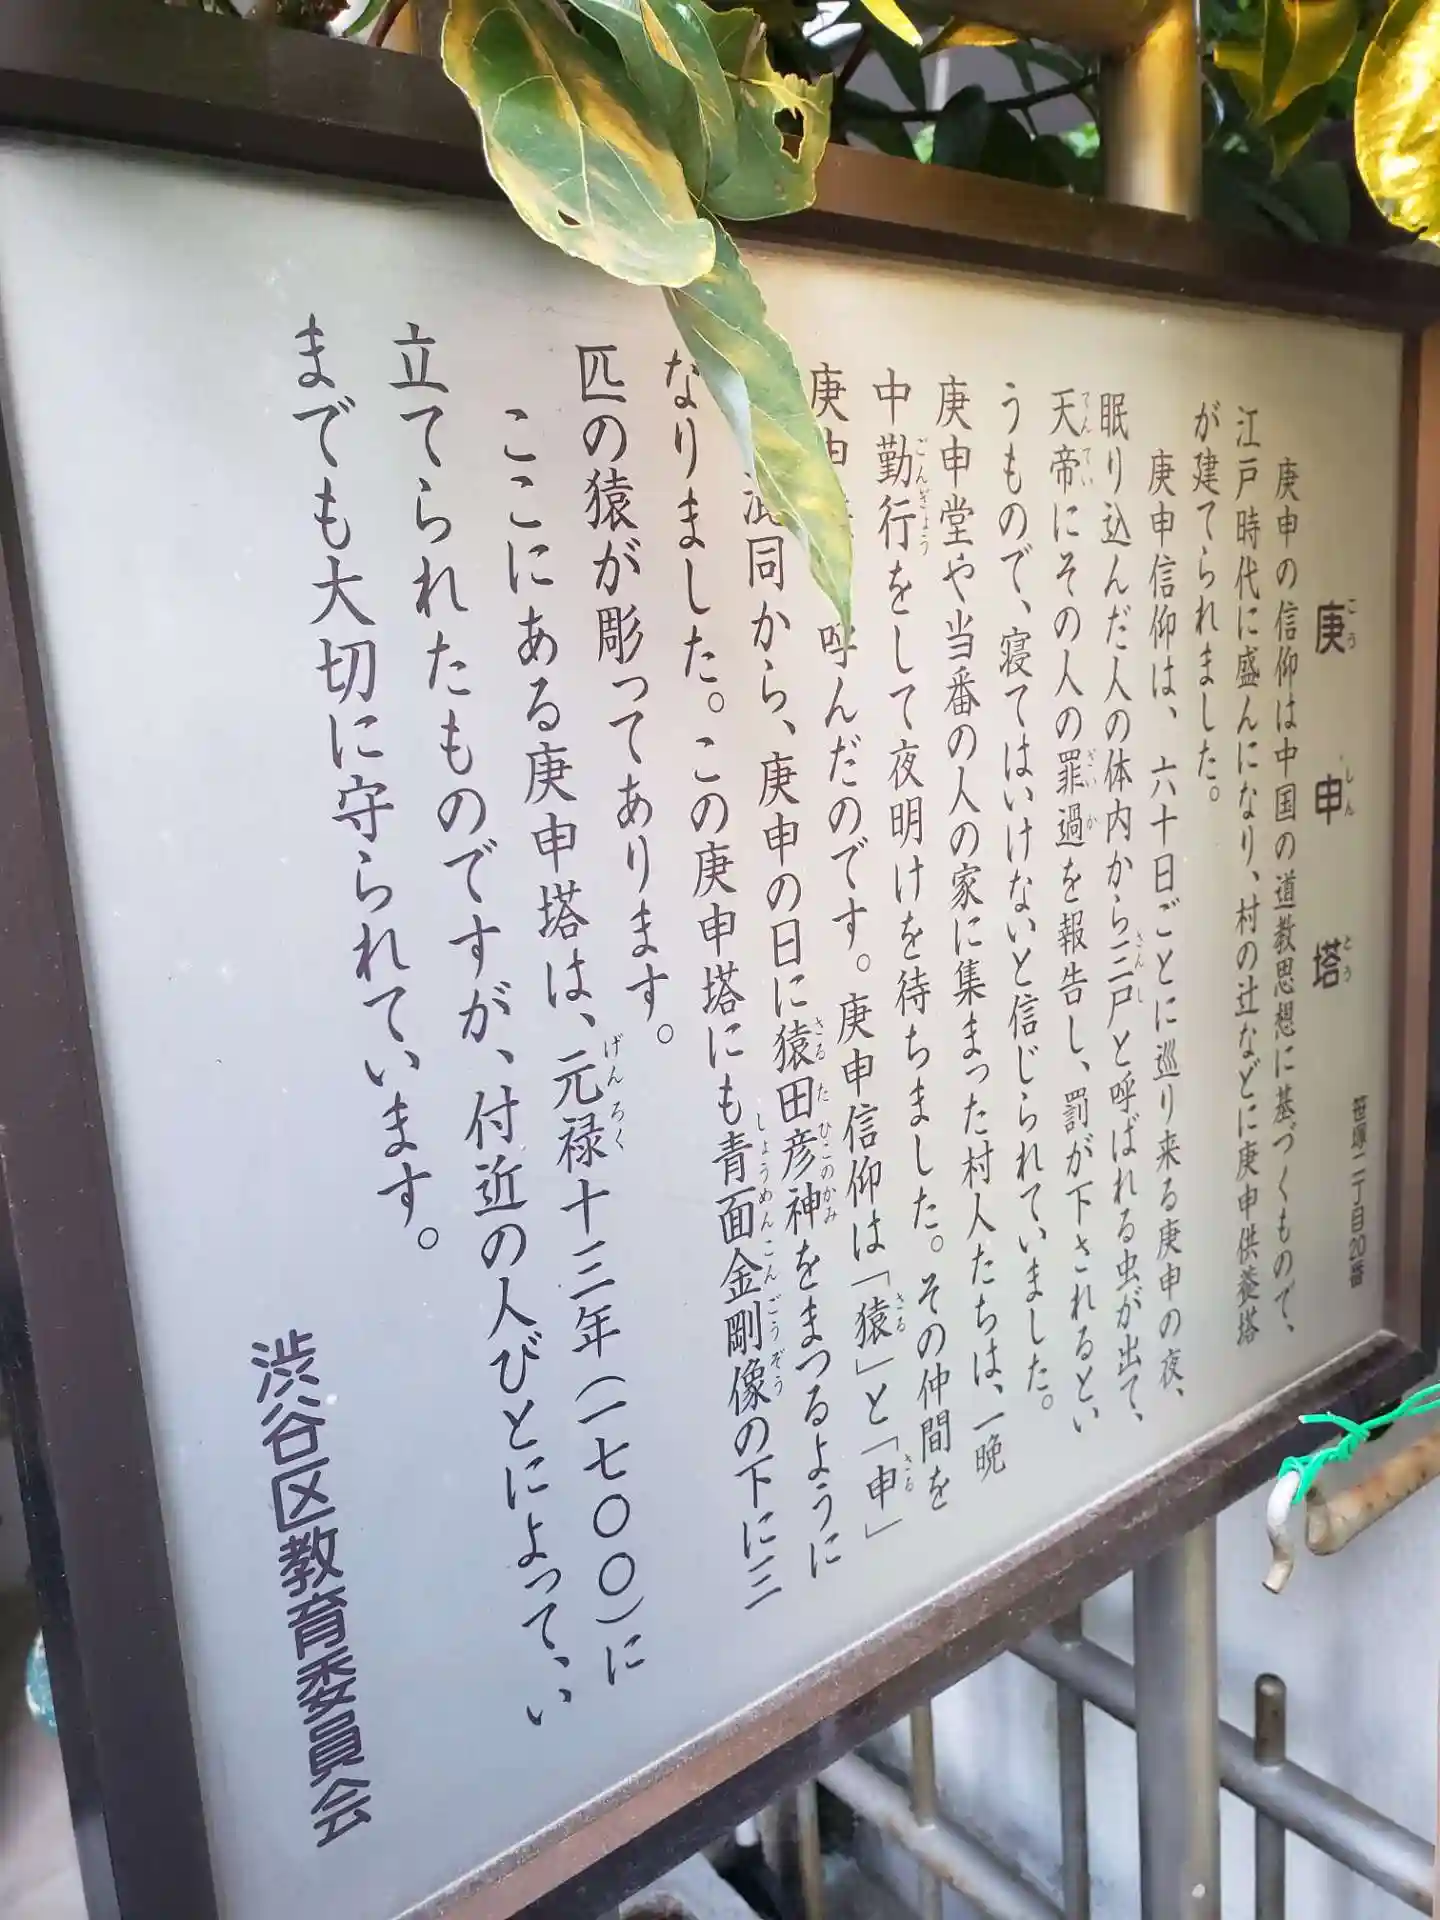 庚申塔
笹塚二丁目20番
庚申の信仰は中国の道教思想に基づくもので、
江戸時代に盛んになり、村の辻などに庚申供養塔
が建てられました。
庚申信仰は、六十日ごとに巡り来る庚申の夜、
眠り込んだ人の体内から三尸と呼ばれる虫が出て、
天帝にその人の罪過を報告し、罰が下されるとい
うもので、寝てはいけないと信じられていました。
庚申堂や当番の人の家に集まった村人たちは、一晩
中勤行をして夜明けを待ちました。その仲間を
庚申 呼んだのです。庚申信仰は「猿」と「申」
混同から、庚申の日に猿田彦神をまつるように
なりました。この庚申塔にも青面金剛像の下に三
匹の猿が彫ってあります。
ここにある庚申塔は、元禄十三年(一七〇〇)に
立てられたものですが、付近の人びとによって、い
までも大切に守られています。
渋谷区教育委員会